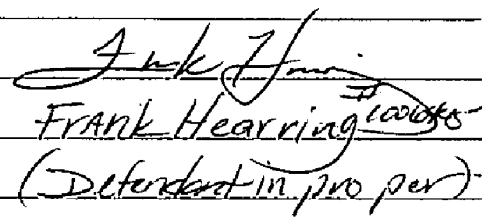 Frank Hearring
(Defendant in pro per)